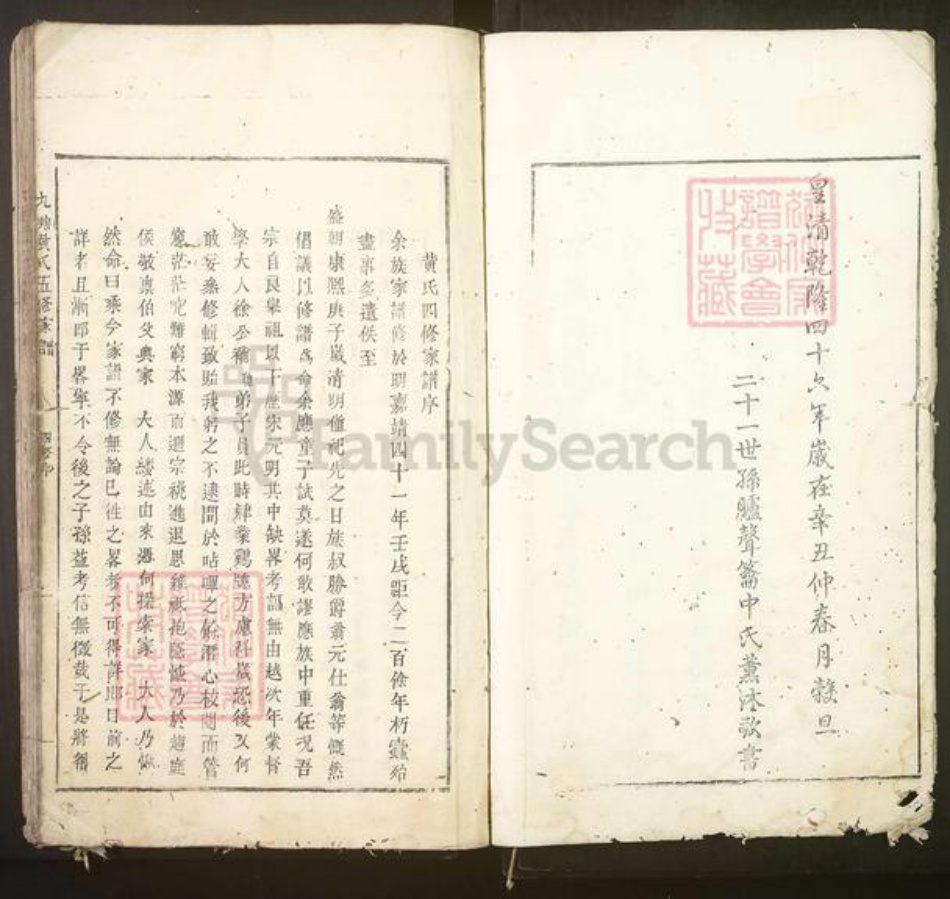 皇清乾隆四十六年歲在辛丑仲春月穀旦
二十一世孫臚聲篇中氏薰沐敬書
黄氏四修家譜序
余族家譜修於明嘉靖四十一年壬戌距今二百餘年朽蠹殆
盡事多遺佚至
盛朝康熙庚子嵗清明僮祀先之日族叔勝爵翁元仕翁等慨然
倡議以修譜爲命余應童子試莫遂何敢謬應族中重任况吾
宗自良舉祖以下歷宋元明其中缺畧考詢無由越次年業督
學大人徐公補弟子員此時肄業鷄牕方慮科嵗恐後又何
敢妄叅修輯致貽我躬之不逮間於呫嗶之餘潛心校閱而管
窺茫茫究難窮本源而遡宗祧進退思維祗抱隱慽乃於趨庭
侯敬禀伯父與家 大人縷述由來憑何操索家 大人乃愀
然命曰乘今家譜不修無論已徃之畧者不可得詳即目前之
詳者且漸即于畧寧不令後之子孫益考信無徵哉于是將舊
黄氏五修家譜
FamilySearch
譜學會
收藏